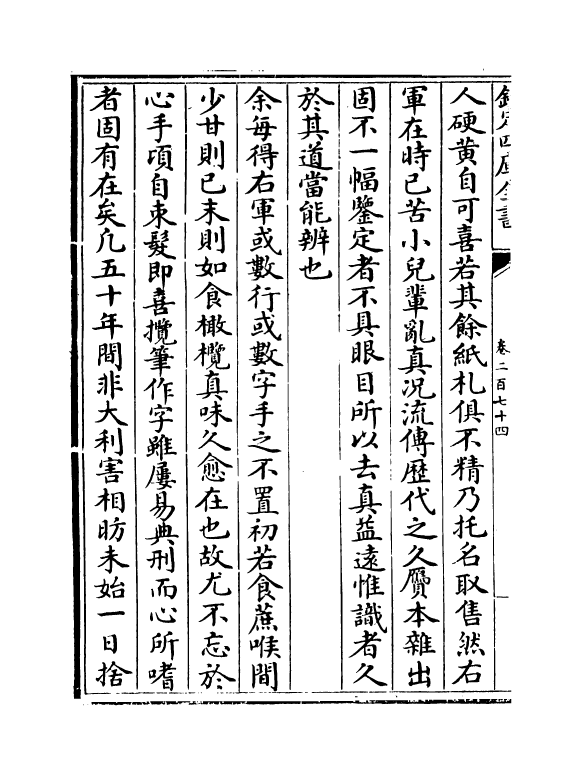 欽定四庫全書
卷二百七十四
人硬黄自可喜若其餘紙札俱不精乃托名取售然右
軍在時已苦小兒輩亂真况流傳歷代之久贗本雜出
固不一幅鑒定者不具眼目所以去真益遠惟識者久
於其道當能辨也
余每得右軍或數行或數字手之不置初若食蔗喉間
少甘則已末則如食橄欖真味久愈在也故尤不忘於
心手頃自束髮即喜攬筆作字雖屢易典刑而心所嗜
者固有在矣凡五十年間非大利害相妨未始一日捨